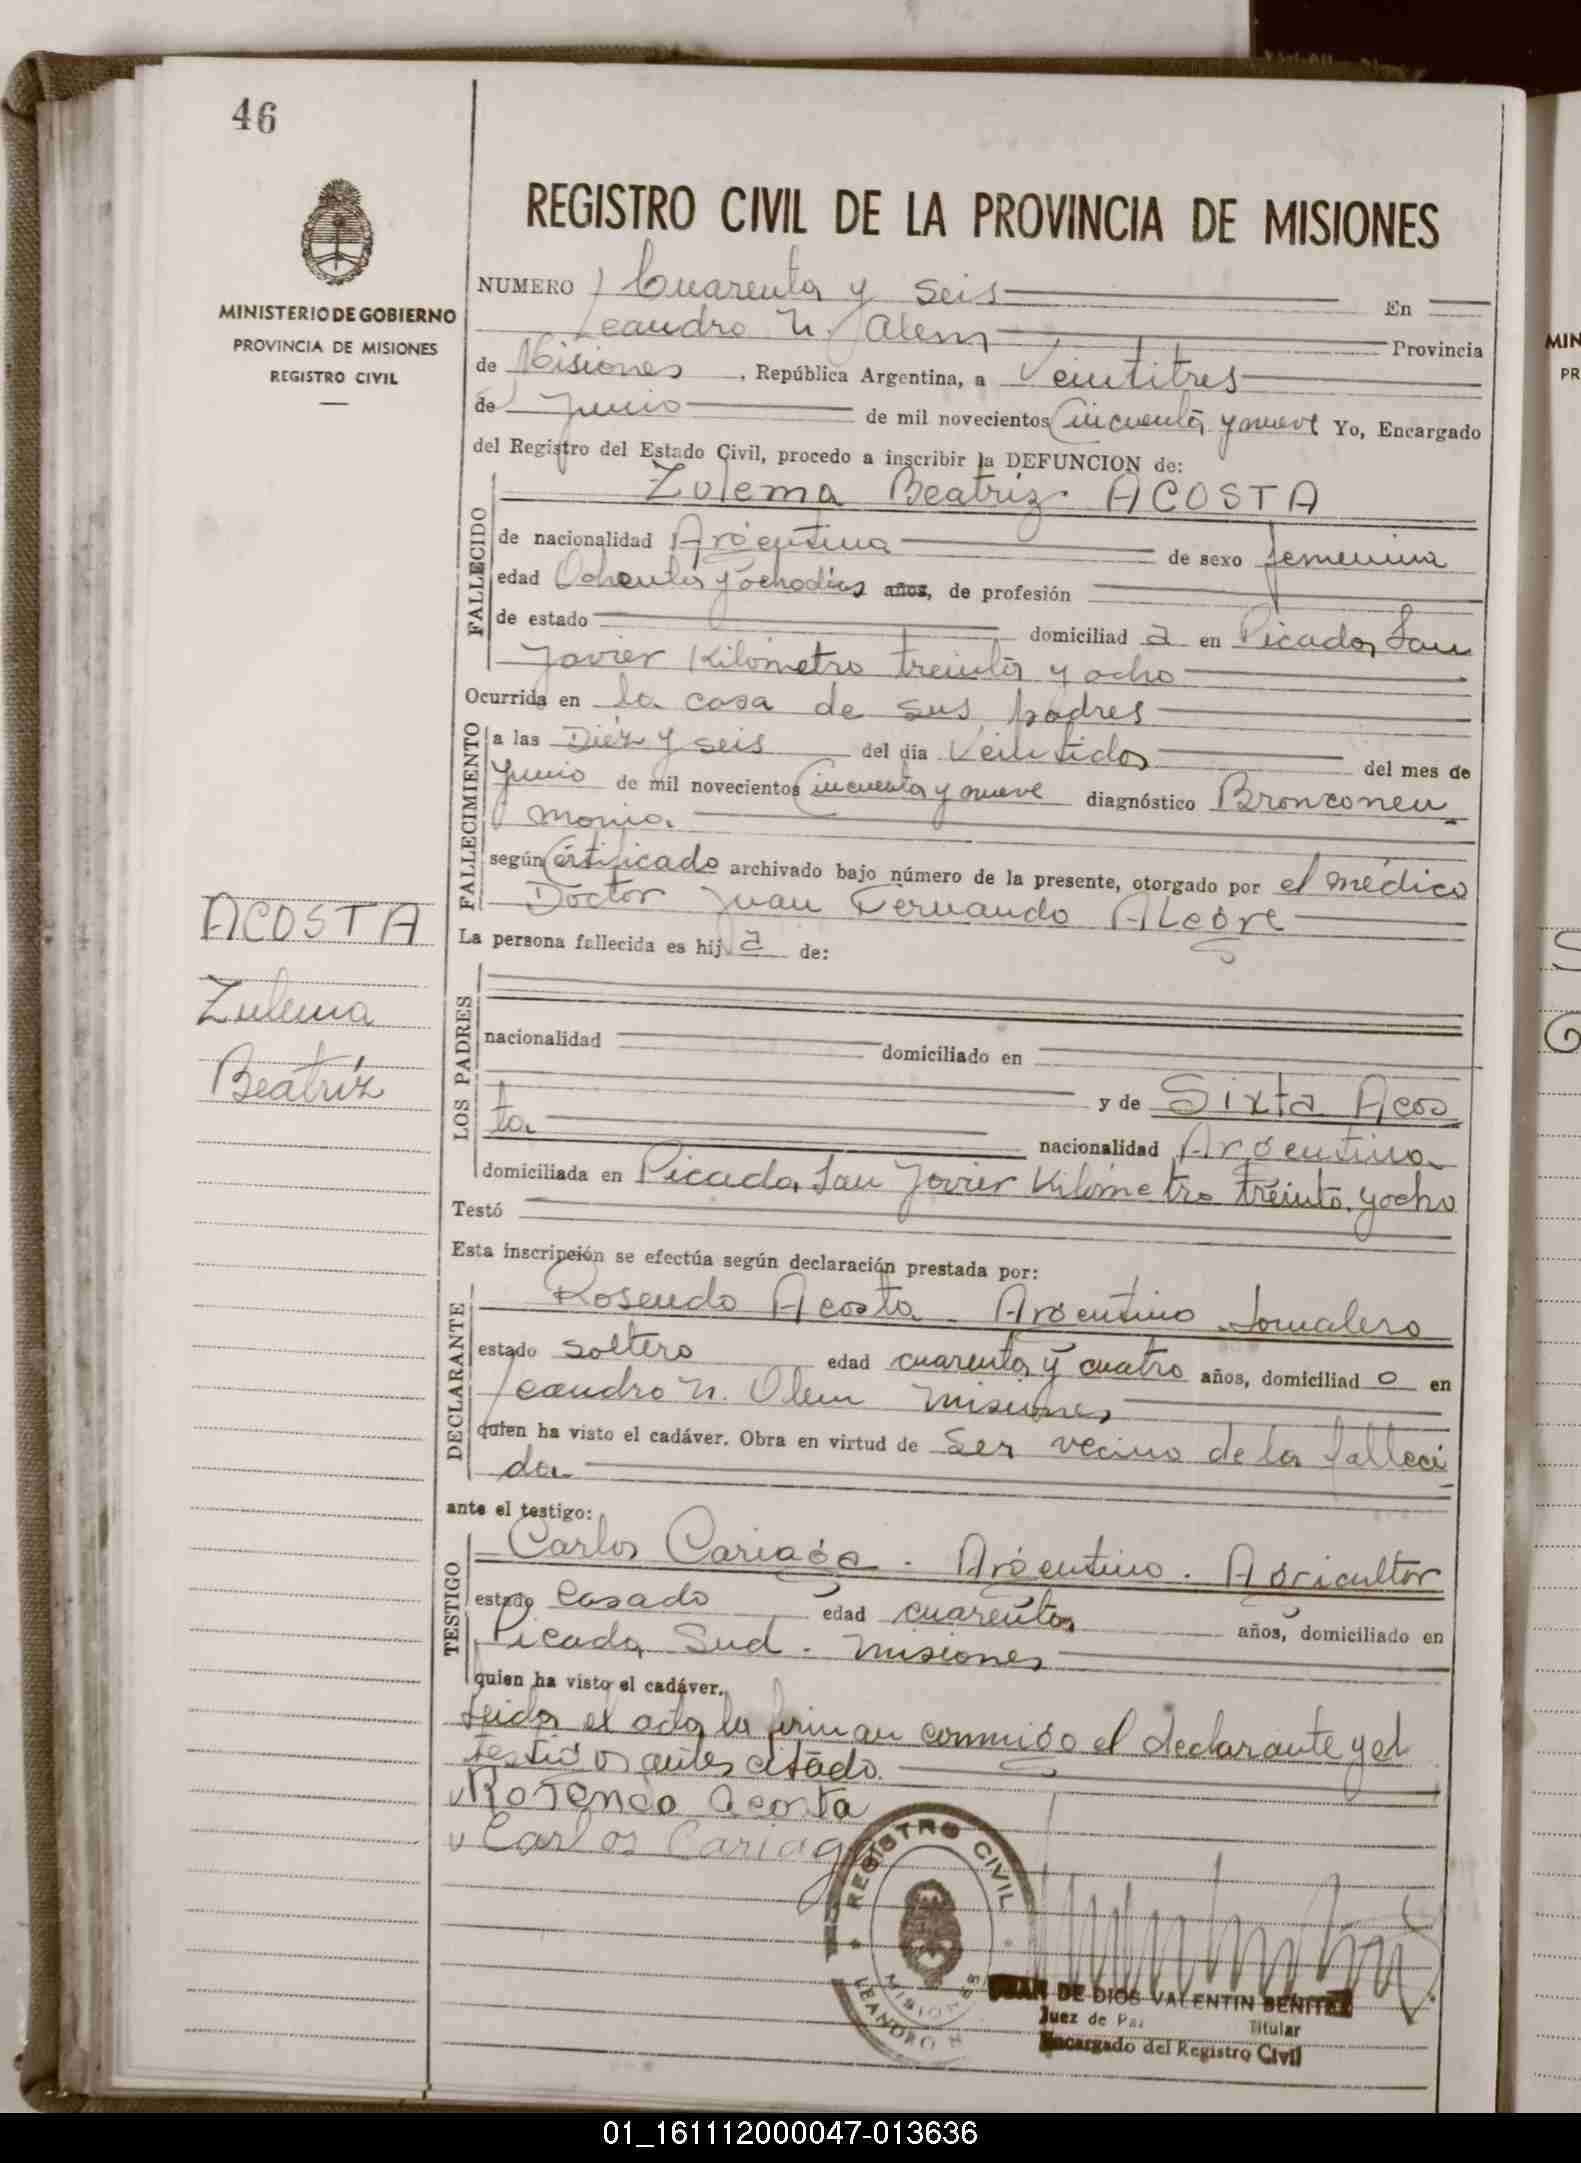 46
MINISTERIO DE GOBIERNO
PROVINCIA DE MISIONES
REGISTRO CIVIL
REGISTRO CIVIL DE LA PROVINCIA DE MISIONES
NUMERO Cuarenta y seis En
Leandro N. Alem Provincia
de Misiones , República Argentina, a Veintitres
de Junio de mil novecientos Cincuenta y nueve Yo, Encargado
del Registro del Estado Civil, procedo a inscribir la DEFUNCION de:
Zulema Beatriz ACOSTA
FALLECIDO
de nacionalidad Argentina de sexo femenina
edad Ochenta y ocho dias años, de profesión
de estado domiciliad a en Picada San
Javier Kilómetro treinta y ocho
Ocurrida en la casa de sus padres
FALLECIMIENTO
a las Diéz y seis del día Veintidos del mes de
Junio de mil novecientos Cincuenta y nueve diagnóstico Bronconeu
monia.
según Certificado archivado bajo número de la presente, otorgado por el médico
Doctor Juan Fernando Alegre
La persona fallecida es hij a de:
ACOSTA
Zulema
Beatríz
LOS PADRES
nacionalidad domiciliado en
y de Sixta Acos
ta nacionalidad Argentina
domiciliada en Picada San Javier Kilómetro treinta y ocho
Testó
Esta inscripción se efectúa según declaración prestada por:
DECLARANTE
Rosendo Acosta - Argentino Jornalero
estado soltero edad cuarenta y cuatro años, domiciliad o en
Leandro N. Alem Misiones
quien ha visto el cadáver. Obra en virtud de ser vecino de la falleci
da
ante el testigo:
TESTIGO
Carlos Cariaga. Argentino. Agricultor
estado casado edad cuarenta años, domiciliado en
Picada Sud - Misiones
quien ha visto el cadáver.
Leida el acta la firman conmigo el declarante y el
testigos antes citado.
Rosendo acosta
Carlos Cariag
REGISTRO CIVIL
MISIONES
LEANDRO N
JUAN DE DIOS VALENTIN BENITEZ
Juez de Paz Titular
Encargado del Registro Civil
MIN
PR
01_161112000047-013636